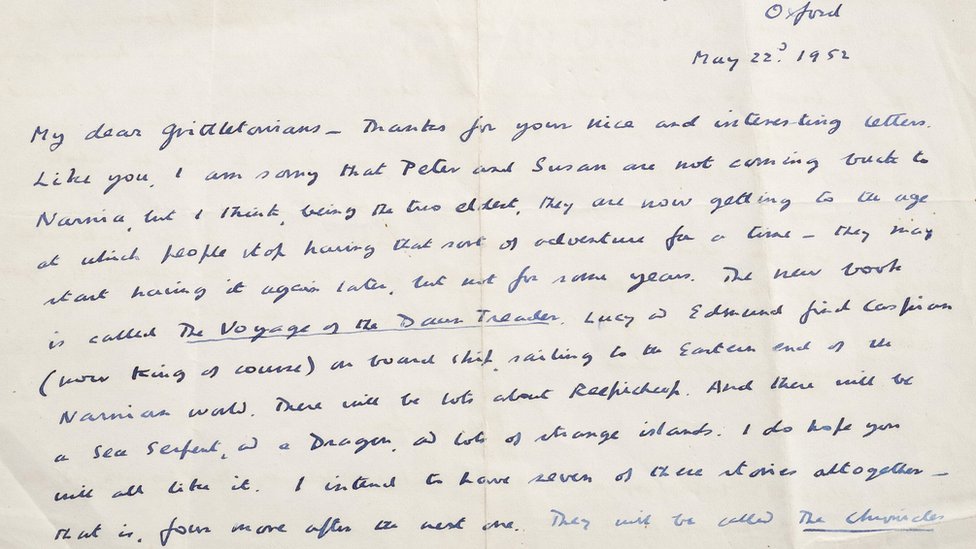 Oxford
May 22d. 1952
My dear Grittletonians – Thanks for your nice and interesting letters.
Like you, I am sorry that Peter and Susan are not coming back to
Narnia, but I think, being the two eldest, they are now getting to the age
at which people stop having that sort of adventure for a time – they may
start having it again later, but not for some years. The new book
is called The Voyage of the Dawn Treader. Lucy & Edmund find Caspian
(now King of course) on board ship, sailing to the Eastern end of the
Narnian world. There will be lots about Reepicheep. And there will be
a Sea Serpent, & a Dragon, & lots of strange islands. I do hope you
will all like it. I intend to have seven of these stories altogether –
that is, four more after the next one. They will be called The Chronicles